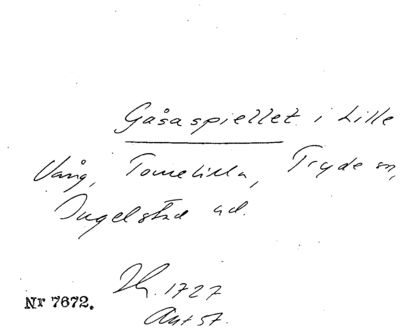 Gåsaspiellet i Lille
Vång, Tomelilla, Tryde sn,
Ingelstad hd.
Nr 7672.
1727
Ant ST.